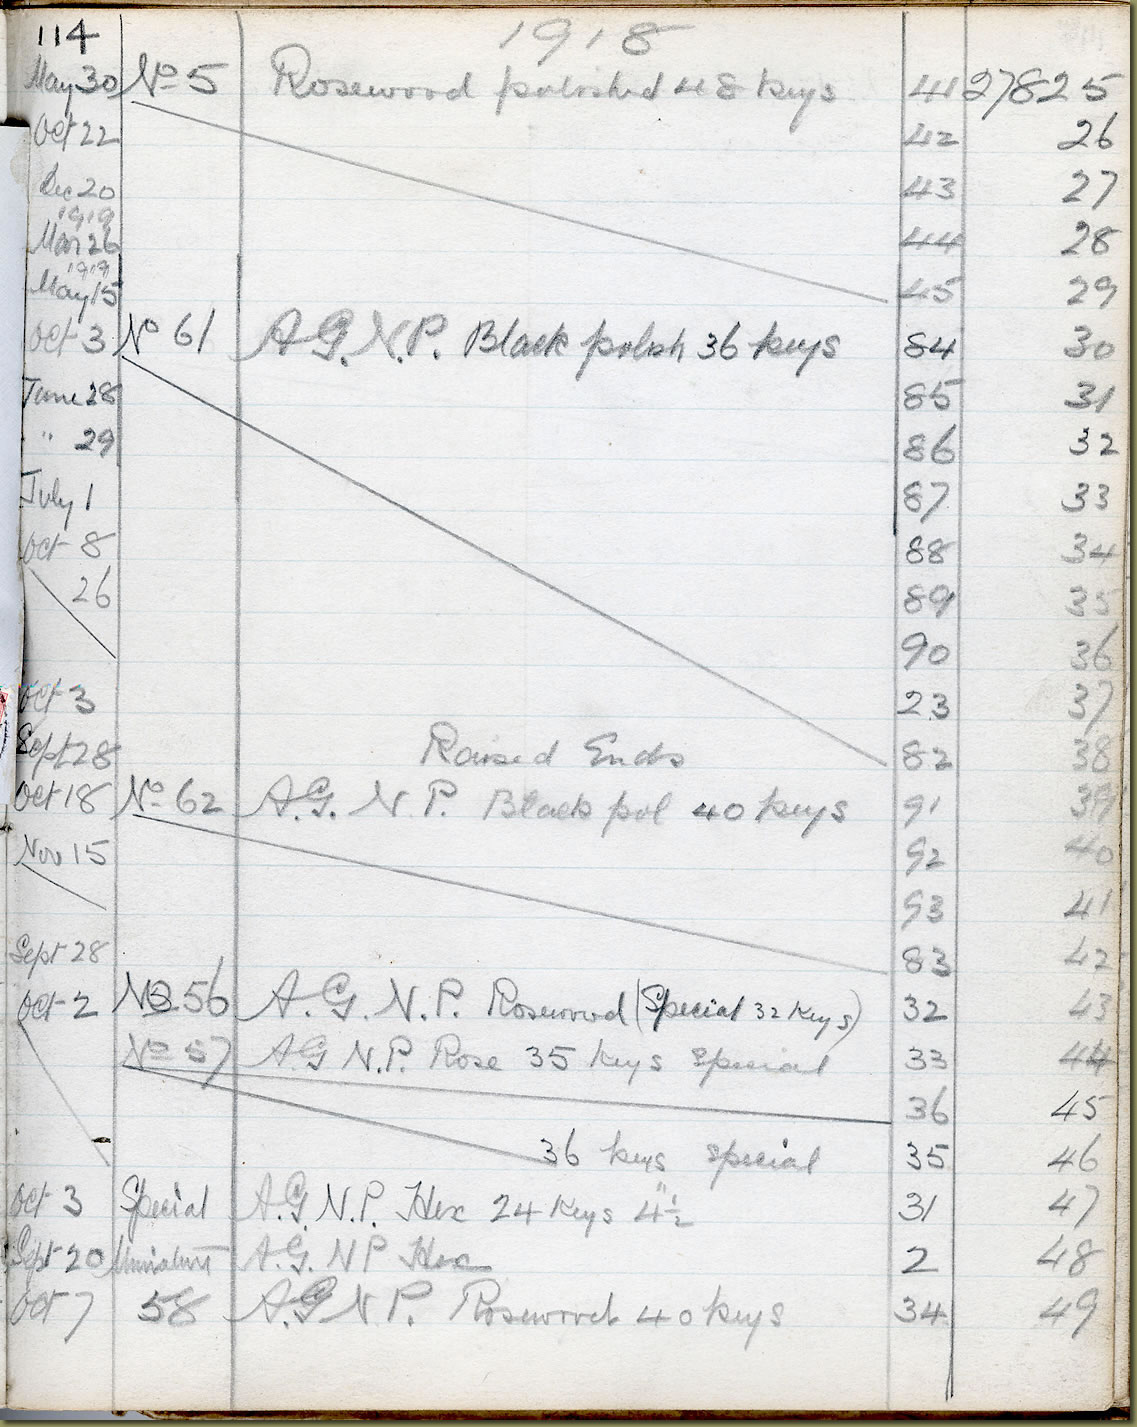 114 1918
May 30 No 5 Rosewood polished 48 keys 41 27825
Oct 22 42 26
Dec 20 43 27
1919
Mar 26 44 28
1919
May 15 45 29
Oct 3 No 61 A.G. N.P. Black polish 36 keys 84 30
June 28 85 31
" 29 86 32
July 1 87 33
Oct 8 88 34
26 89 35
90 36
Oct 3 23 37
Sept 28 Raised Ends 82 38
Oct 18 No 62 A.G. N.P. Black pol 40 keys 91 39
Nov 15 92 40
93 41
Sept 28 83 42
Oct 2 No 56 A.G. N.P. Rosewood (Special 32 keys) 32 43
No 57 A G N.P. Rose 35 keys special 33 44
36 45
36 keys special 35 46
Oct 3 Special A.G. N.P. Hex 24 keys 4½" 31 47
Sept 20 Miniature A.G. N P Hex 2 48
Oct 7 58 A.G N P. Rosewood 40 keys 34 49